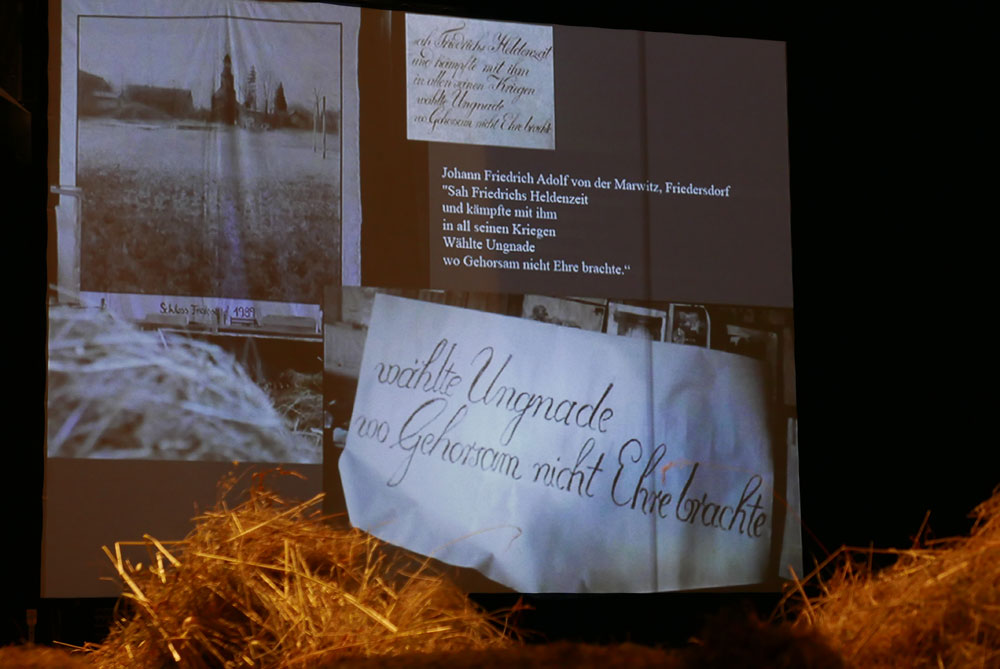 sah Friedrichs Heldenzeit
und kämpfte mit ihm
in allen seinen Kriegen
wählte Ungnade
wo Gehorsam nicht Ehre bracht
Johann Friedrich Adolf von der Marwitz, Friedersdorf
"Sah Friedrichs Heldenzeit
und kämpfte mit ihm
in all seinen Kriegen
Wählte Ungnade
wo Gehorsam nicht Ehre brachte.“
Schloss 1989
wählte Ungnade
wo Gehorsam nicht Ehre brachte